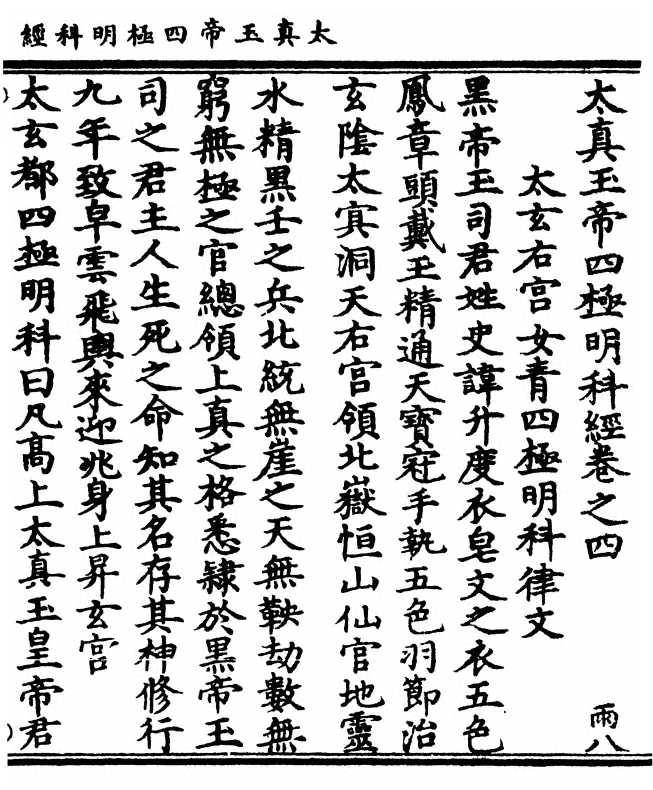 太真玉帝四極明科經
太真玉帝四極明科經卷之四
雨八
太玄右宮女青四極明科律文
黑帝玉司君姓史諱升度衣皂文之衣五色
鳳章頭戴玉精通天寶冠手執五色羽節治
玄陰太冥洞天右宮領北嶽恒山仙官地靈
水精黑壬之兵北統無崖之天無鞅劫數無
窮無極之官總領上真之格悉隸於黑帝玉
司之君主人生死之命知其名存其神修行
九年致皁雲飛輿來迎兆身上昇玄宮
太玄都四極明科曰凡高上太真玉皇帝君